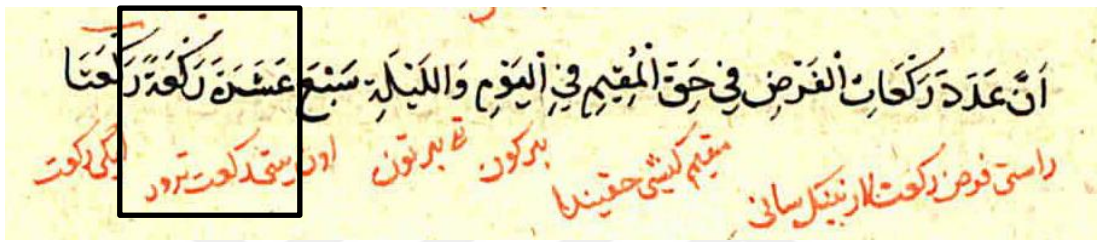 اَنَّ عَدَدَ رَكَعَاتِ الْفَرْضِ فِي حَقِّ الْمُقِيمِ فِي الْيَوْمِ وَاللَّيْلَةِ سَبْعَ عَشَرَةَ رَكْعَةً رَكْعَتَا
راستى فرض ركعتلارنينك سانى مقيم كيشى حقيندا بير كون بير تون اون ركعت ترور ايكى ركعت